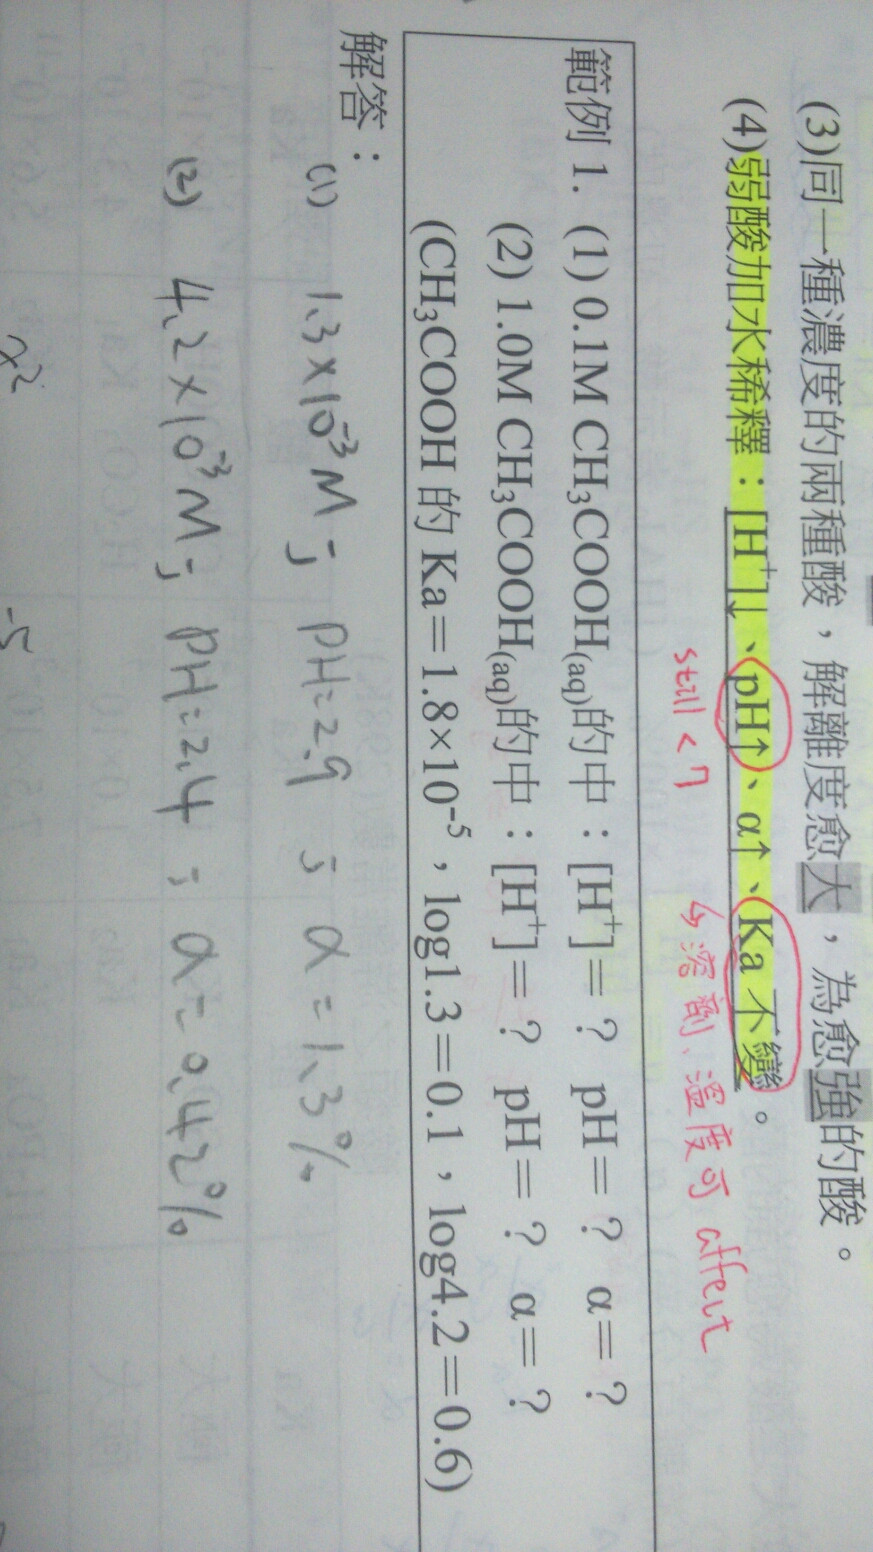 (3)同一種濃度的兩種酸，解離度愈大，為愈強的酸。
(4)弱酸加水稀釋：[H⁺]↓、pH↑、α↑、Ka 不變。
still < 7
↳ 溶劑、溫度可 affect
範例 1. (1) 0.1M CH₃COOH₍aq₎的中：[H⁺]＝？ pH＝？ α＝？
(2) 1.0M CH₃COOH₍aq₎的中：[H⁺]＝？ pH＝？ α＝？
(CH₃COOH 的 Ka＝1.8×10⁻⁵，log1.3＝0.1，log4.2＝0.6)
解答：
(1) 1.3×10⁻³M; pH=2.9; α=1.3%
(2) 4.2×10⁻³M; pH=2.4; α=0.42%
x² -5